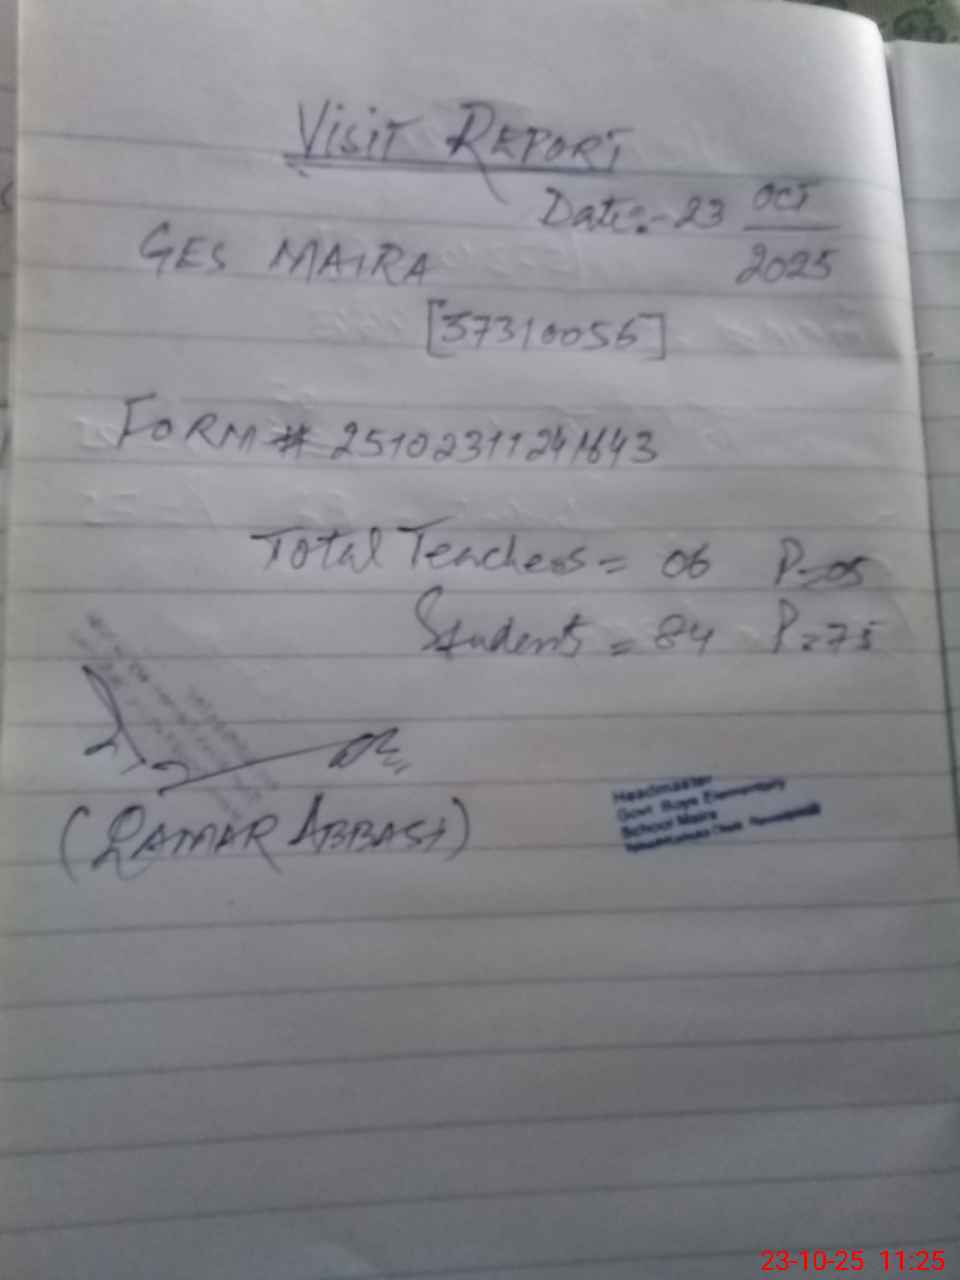 Visit REPORT
Date:- 23 OCT
2025
GES MAIRA
[37310056]
FORM # 25102311241643
Total Teachers = 06 P=05
Students = 84 P=75
(QAMAR ABBASI)
Headmaster
Govt Boys Elementary
School Maira
23-10-25 11:25